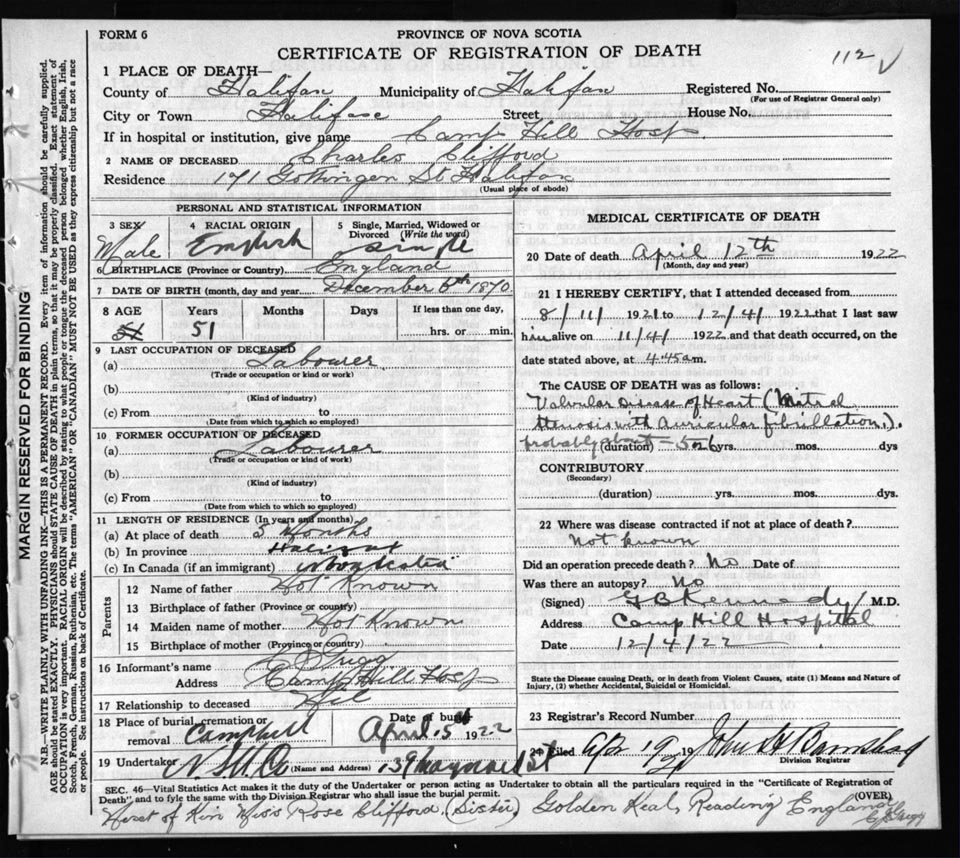 FORM 6
PROVINCE OF NOVA SCOTIA
CERTIFICATE OF REGISTRATION OF DEATH
112
1 PLACE OF DEATH—
County of Halifax Municipality of Halifax Registered No.
(For use of Registrar General only)
City or Town Halifax Street, House No.
If in hospital or institution, give name Camp Hill Hosp.
2 NAME OF DECEASED Charles Clifford
Residence 171 Gottingen St Halifax
(Usual place of abode)
PERSONAL AND STATISTICAL INFORMATION
3 SEX Male
4 RACIAL ORIGIN English
5 Single, Married, Widowed or Divorced (Write the word) Single
6 BIRTHPLACE (Province or Country) England
7 DATE OF BIRTH (month, day and year) December 6th 1870
8 AGE Years Months Days If less than one day,
51 hrs. or min.
9 LAST OCCUPATION OF DECEASED
(a) Labourer
(Trade or occupation or kind of work)
(b)
(Kind of industry)
(c) From to
(Date from which to which so employed)
10 FORMER OCCUPATION OF DECEASED
(a) Labourer
(Trade or occupation or kind of work)
(b)
(Kind of industry)
(c) From to
(Date from which to which so employed)
11 LENGTH OF RESIDENCE (In years and months)
(a) At place of death 5 Months
(b) In province
(c) In Canada (if an immigrant)
Parents
12 Name of father Not Known
13 Birthplace of father (Province or country)
14 Maiden name of mother Not Known
15 Birthplace of mother (Province or country)
16 Informant's name Grigg
Address Camp Hill Hosp
17 Relationship to deceased Nil
18 Place of burial, cremation or removal Camphill
Date of burial April 15 1922
19 Undertaker N.S.U.Co (Name and Address)
MEDICAL CERTIFICATE OF DEATH
20 Date of death April 12th 1922
(Month, day and year)
21 I HEREBY CERTIFY, that I attended deceased from
8/11/ 1921 to 12/4/ 1922 that I last saw
him alive on 11/4/ 1922 and that death occurred, on the
date stated above, at 4.45 a m.
The CAUSE OF DEATH was as follows:
Valvular Disease of Heart (Mitral
Stenosis with Auricular fibrillation).
probably about (duration) – 5 or 6 yrs. mos. dys
CONTRIBUTORY
(Secondary)
(duration) yrs. mos. dys.
22 Where was disease contracted if not at place of death?
Not known
Did an operation precede death? No Date of
Was there an autopsy? No
(Signed) G B Kennedy M.D.
Address Camp Hill Hospital
Date 12/4/22
State the Disease causing Death, or in death from Violent Causes, state (1) Means and Nature of
Injury, (2) whether Accidental, Suicidal or Homicidal.
23 Registrar's Record Number
24 Filed Apr 19 John
Division Registrar
SEC. 46—Vital Statistics Act makes it the duty of the Undertaker or person acting as Undertaker to obtain all the particulars required in the "Certificate of Registration of
Death" and to fyle the same with the Division Registrar who shall issue the burial permit.
(OVER)
Next of Kin Miss Rose Clifford (Sister) Golden Reading England
C Grigg
MARGIN RESERVED FOR BINDING
N.B.—WRITE PLAINLY WITH UNFADING INK—THIS IS A PERMANENT RECORD. Every item of information should be carefully supplied.
AGE should be stated EXACTLY. PHYSICIANS should STATE CAUSE OF DEATH in plain terms, so that it may be properly classified. Exact statement of
OCCUPATION is very important. RACIAL ORIGIN will be described by stating to what people or tongue the deceased person belonged whether English, Irish,
Scotch, French, German, Russian, Ruthenian, etc. The terms "AMERICAN" OR "CANADIAN" MUST NOT BE USED as they express citizenship but not a race
or people. See instructions on back of Certificate.